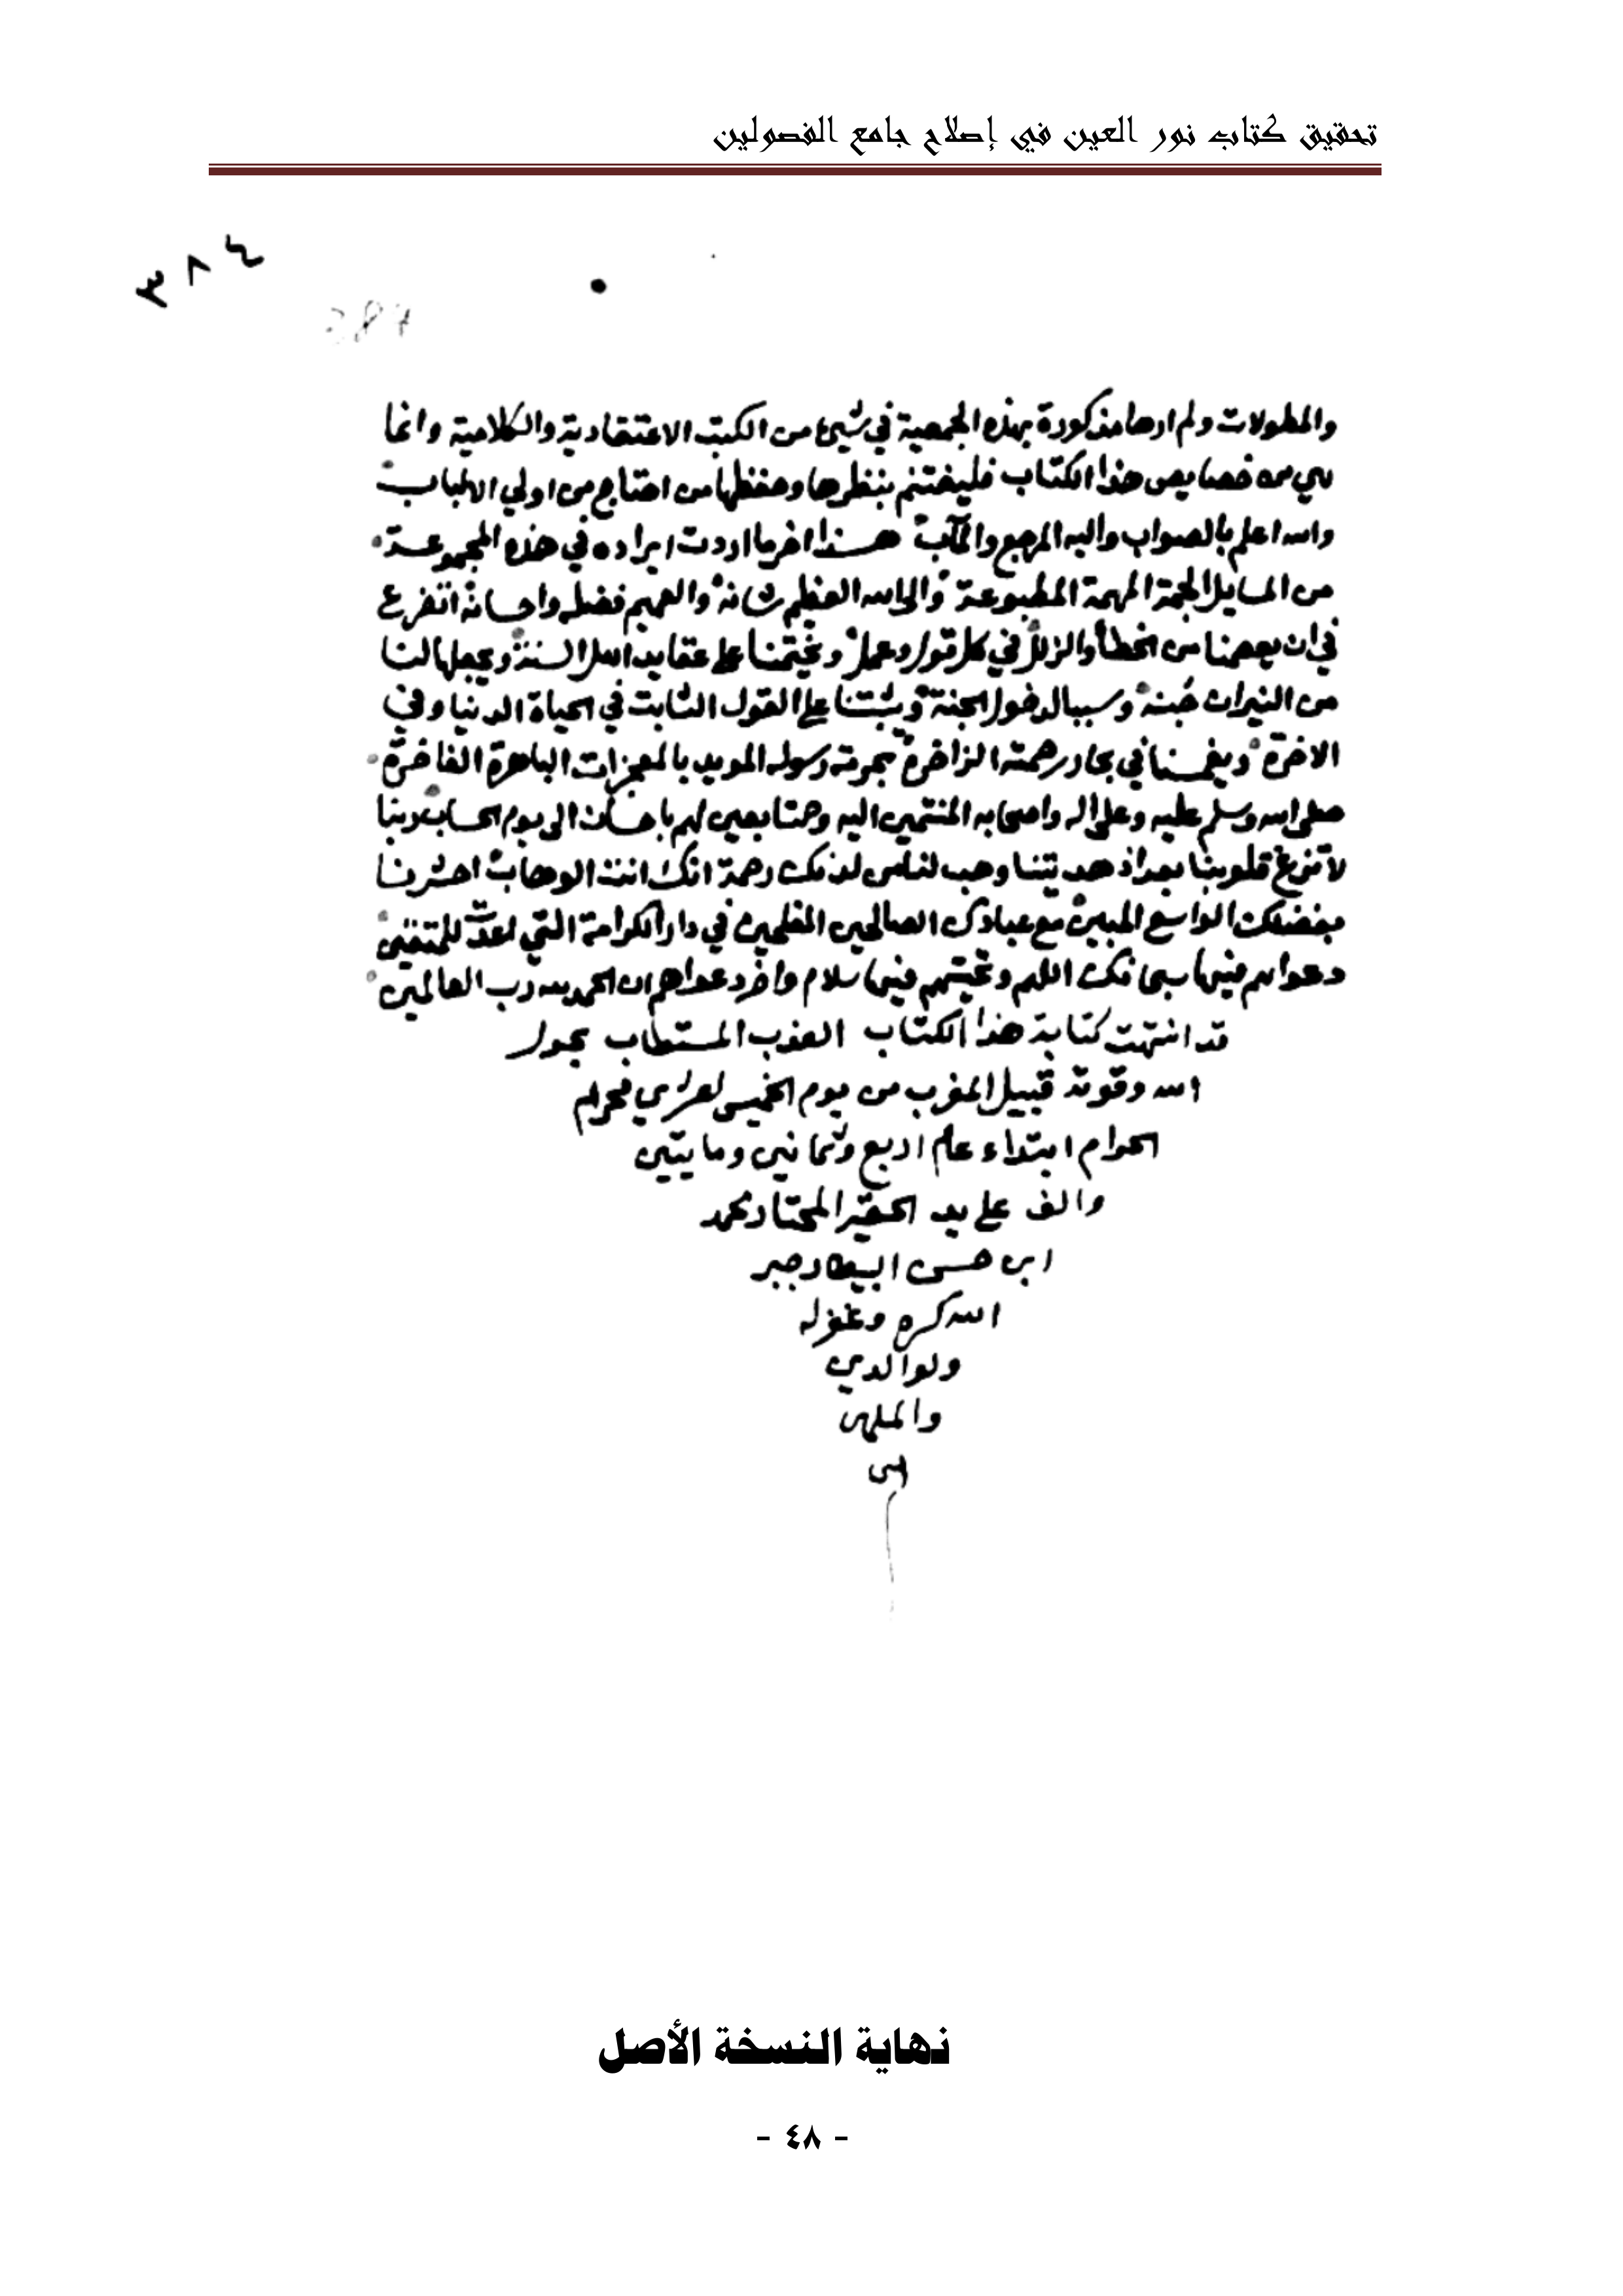 تحقيق كتاب نور العين في إصلاح جامع الفصولين
٣٨٤
والمطولات ولم ارها مذكورة بهذه الجمعية في شيئ من الكتب الاعتقادية والكلامية وانما
هي من خصايص هذا الكتاب فليغتنم بنظرها وحفظها من احتاج من اولي الالباب
والله اعلم بالصواب واليه المرجع والمآب هذا اخر ما اردت ايراده في هذه المجموعة
من المسايل الجمة المهمة المطبوعة والى الله العظيم شانه والعميم فضله واحسانه اتضرع
في ان يعصمنا من الخطأ والزلل في كل قول وعمل ويختمنا على عقايد اهل السنة ويجعلها لنا
من النيران جُنة وسببا لدخول الجنة ويثبتنا على القول الثابت في الحياة الدنيا وفي
الاخرة ويغمسنا في بحار رحمته الزاخرة بحرمة رسوله المويد بالمعجزات الباهرة الفاخرة
صلى الله وسلم عليه وعلى اله واصحابه المنتمين اليه ومتابعين لهم باحسان الى يوم الحساب ربنا
لا تزغ قلوبنا بعد اذ هديتنا وهب لنا من لدنك رحمة انك انت الوهاب احشرنا
بفضلك الواسع المبين مع عبادك الصالحين المفلحين في دار الكرامة التي اعدّت للمتقين
دعواهم فيها سبحانك اللهم وتحيتهم فيها سلام واخر دعواهم ان الحمد لله رب العالمين
قد انتهت كتابة هذا الكتاب العذب المستطاب بحول
الله وقوته قبيل المغرب من يوم الخميس محرم
الحرام ابتداء عام اربع وثمانين ومايتين
والف على يد الحقير المحتاد محمد
ابن حسن البيطار جبر
الله كسره وغفر له
ولوالدي
والمسلمين
نهاية النسخة الأصل
- ٤٨ -